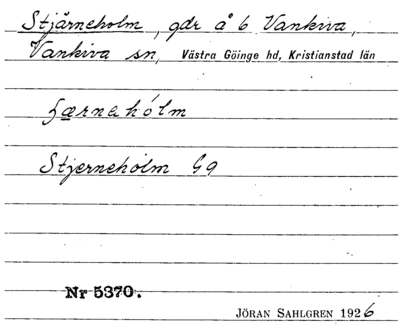 Stjärneholm, gdr å 6 Vankiva,
Vankiva sn, Västra Göinge hd, Kristianstad län
Stjerneholm G9
Nr 5370.
JÖRAN SAHLGREN 1926